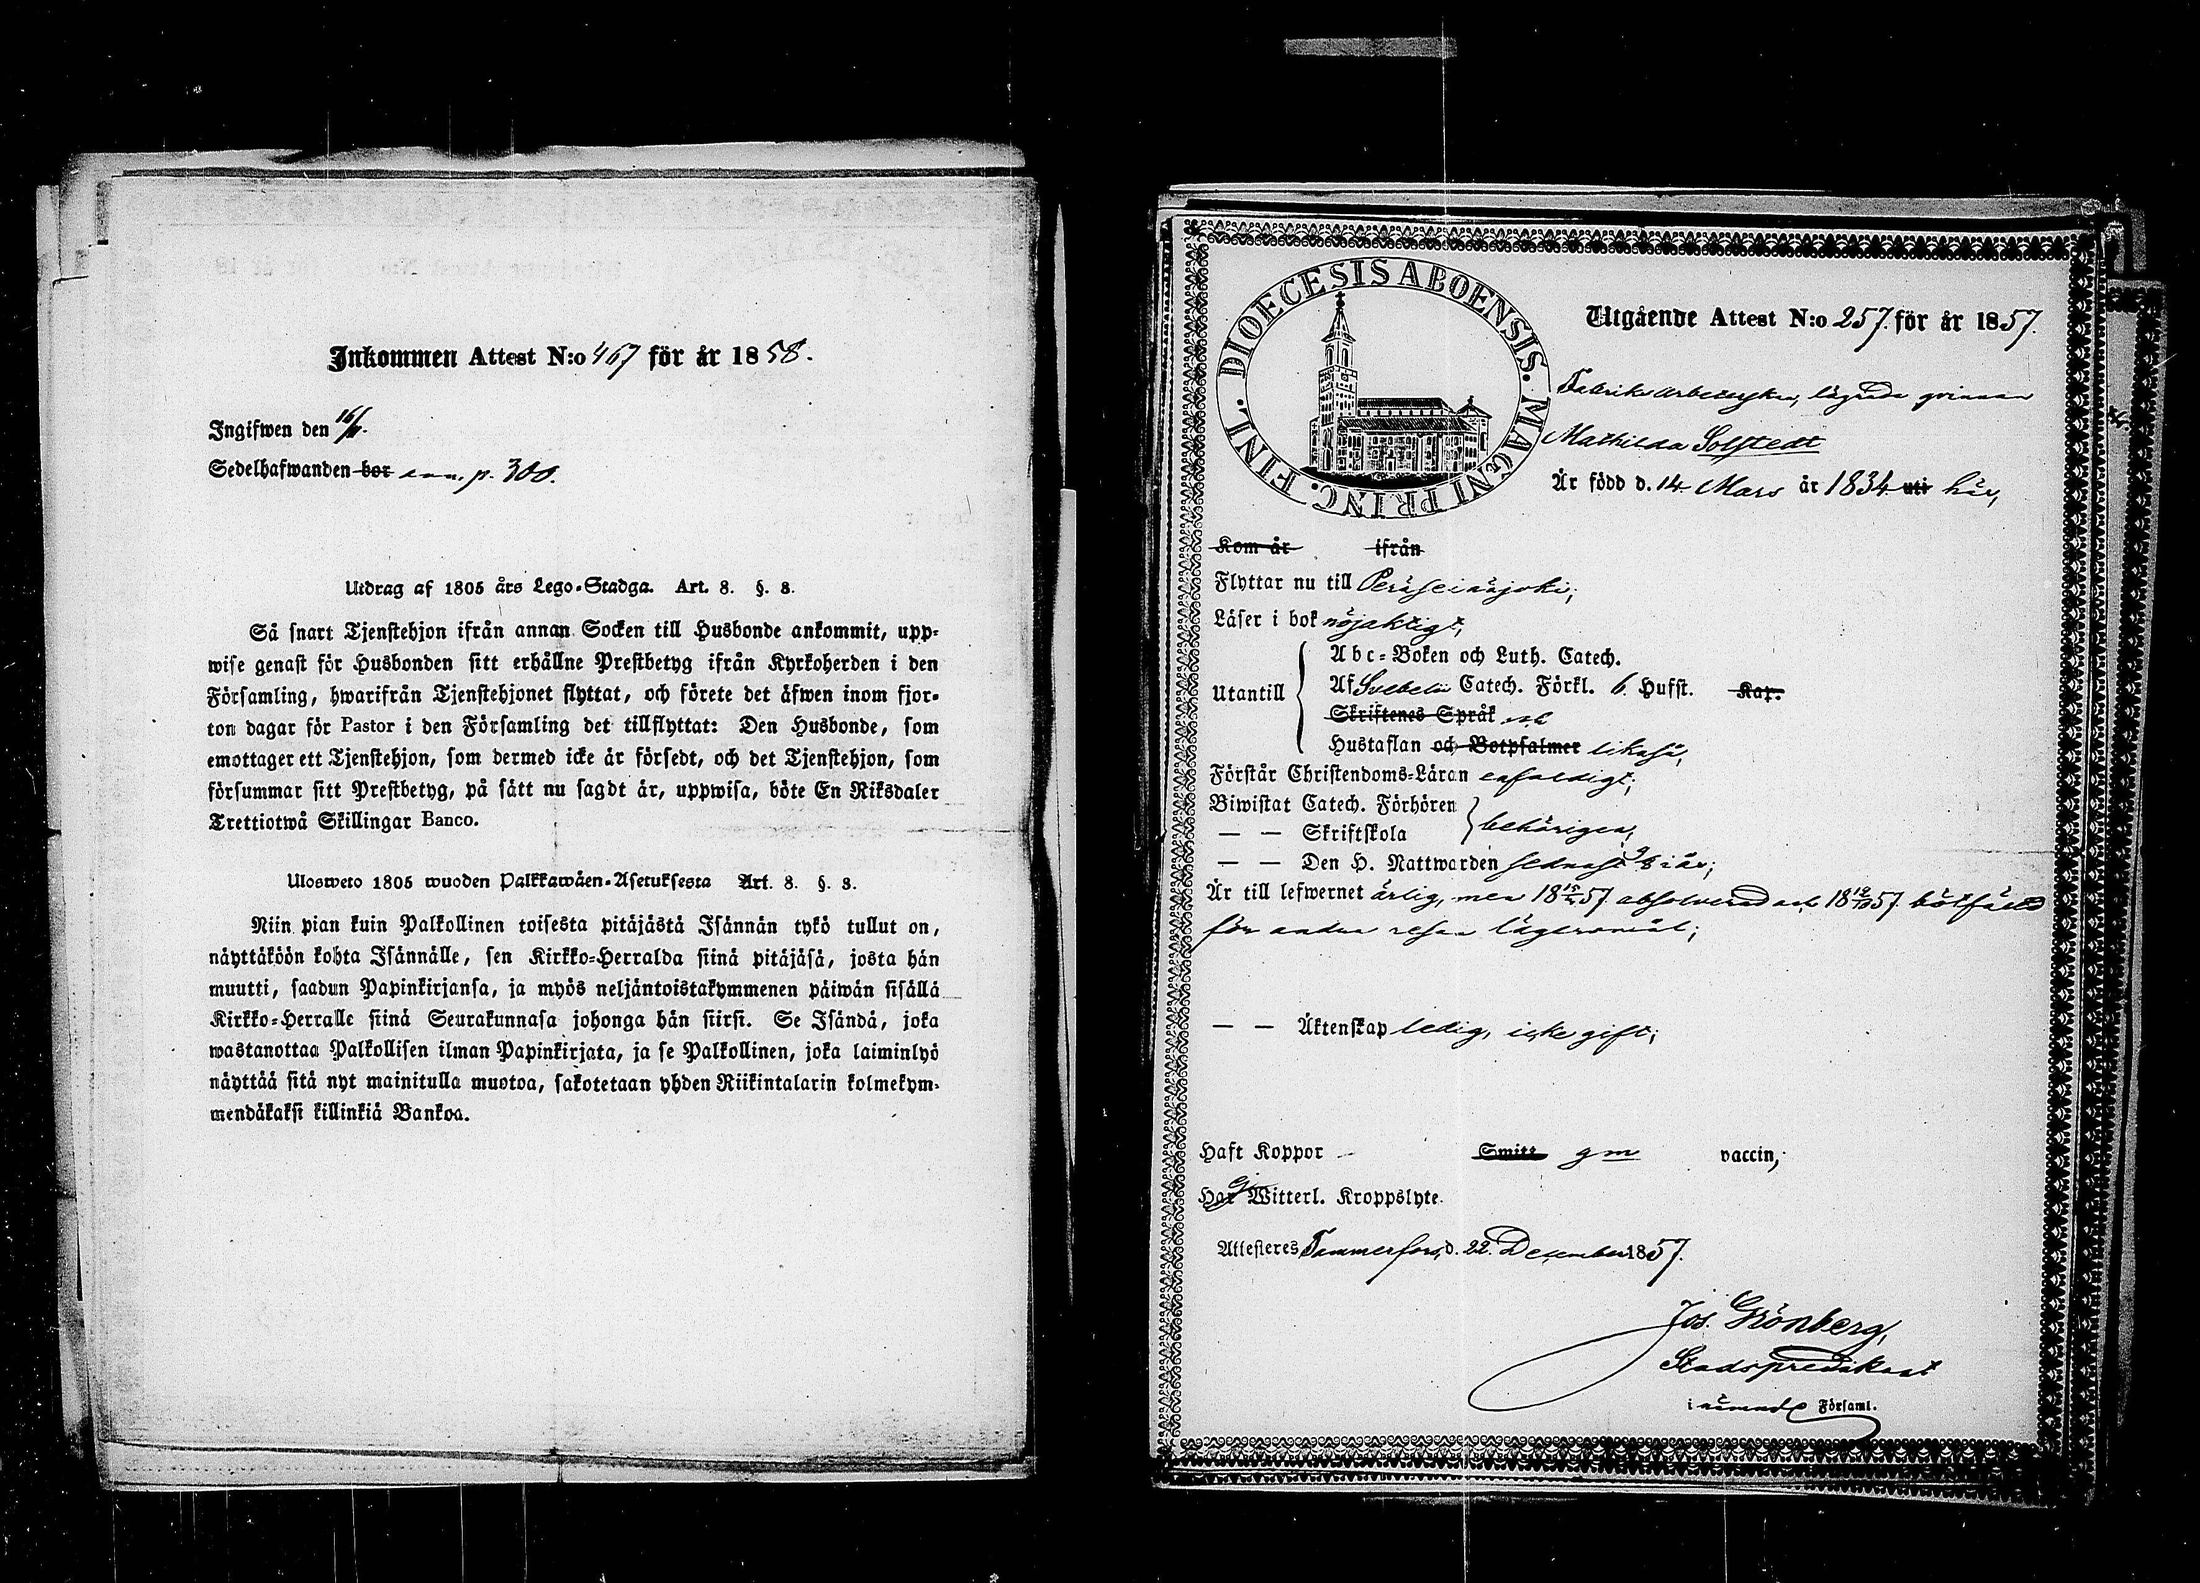 Inkommen Attest N:o 467 för år 1858.
Ingifwen den 16/
Sedelhafwanden bor ann. p. 300.
Utdrag af 1805 års Lego-Stadga. Art. 8. §. 8.
Så snart Tjenstehjon ifrån annan Socken till Husbonde ankommit, upp-
wise genast för Husbonden sitt erhållne Prestbetyg ifrån Kyrkoherden i den
Församling, hwarifrån Tjenstehjonet flyttat, och förete det äfwen inom fjor-
ton dagar för Pastor i den Församling det tillflyttat: Den Husbonde, som
emottager ett Tjenstehjon, som dermed icke är försedt, och det Tjenstehjon, som
försummar sitt Prestbetyg, på sätt nu sagdt är, uppwisa, böte En Riksdaler
Trettiotwå Skillingar Banco.
Ulosweto 1805 wuoden Palkkawäen-Asetuksesta Art. 8. §. 8.
Niin pian kuin Palkollinen toisesta pitäjästä Isännän tykö tullut on,
näyttäköön kohta Isännälle, sen Kirkko-Herralda siinä pitäjäsä, josta hän
muutti, saadun Papinkirjansa, ja myös neljäntoistakymmenen päiwän sisällä
Kirkko-Herralle siinä Seurakunnasa johonga hän siirsi. Se Isändä, joka
wastanottaa Palkollisen ilman Papinkirjata, ja se Palkollinen, joka laiminlyö
näyttää sitä nyt mainitulla muotoa, sakotetaan yhden Riikintalarin kolmekym-
mendäkaksi killinkiä Bankoa.
DIOECESIS ABOENSIS. MAGNI PRINC. FINL.
Utgående Attest N:o 257. för år 1857.
Fabriks arbeterskan, lägrade qvinnan
Mathilda Solstedt
Är född d. 14. Mars år 1834 uti här,
Kom år ifrån
Flyttar nu till Peräseinäjoki;
Läser i bok nöjaktigt,
Utantill
Abc-Boken och Luth. Catech.
Af Svebelii Catech. Förkl. 6. Hufst. Kap.
Skriftenes Språk
Hustaflan och Botpsalmer likaså,
Förstår Christendoms-Läran enfaldigt;
Biwistat Catech. Förhören
— — Skriftskola
behörigen,
— — Den H. Nattwarden sednast i år;
Är till lefwernet ärlig, men 18 57 absolverad och 18 57 bötfäld
för andra resan lägersmål;
— — Äktenskap ledig, icke gift;
Haft Koppor — Smitt gm vaccin,
Har Ej Witterl. Kroppslyte.
Attesteres Tammerfors, d. 22. December 1857.
Jos. Grönberg,
Stadspredikant
i nämnde Församl.